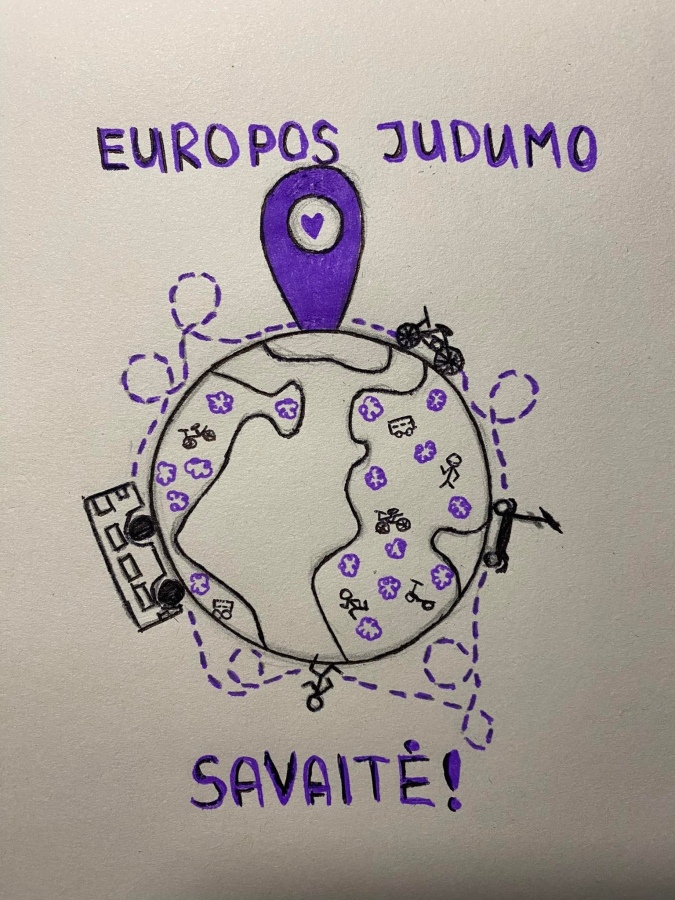 EUROPOS JUDUMO
SAVAITĖ!